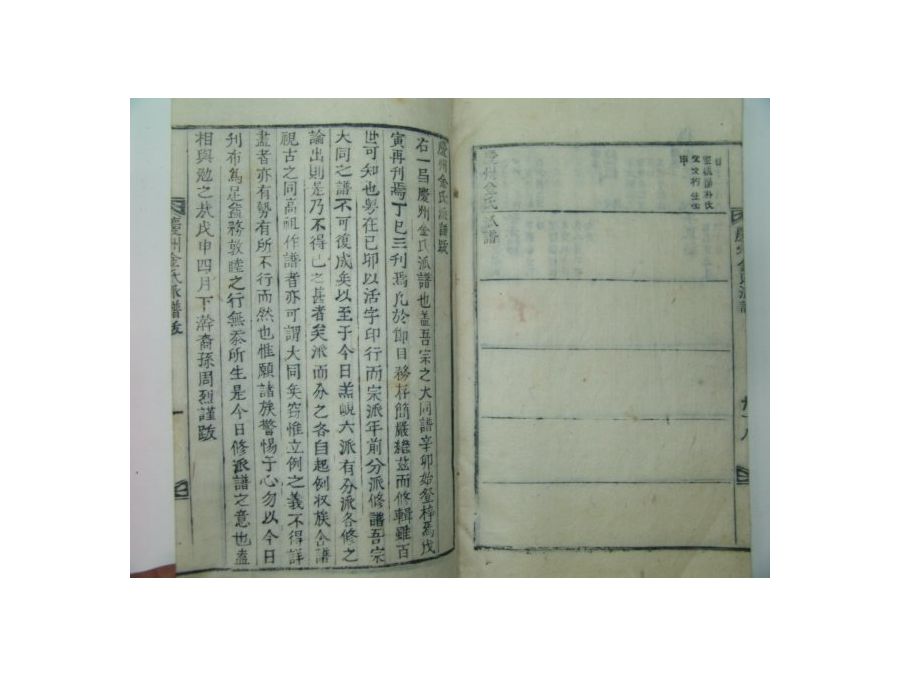 慶州金氏派譜
慶州金氏派譜跋
右一昌慶州金氏派譜也盖吾宗之大同譜辛卯始登梓焉戊
寅再刊焉丁巳三刊焉凡於節目務存簡嚴繼玆而修輯雖百
世可知也粤在己卯以活字印行而宗派年前分派修譜吾宗
大同之譜不可復成矣以至于今日羔峴六派有分派各修之
論出則是乃不得已之甚者矣派而分之各自起例収族合譜
視古之同高祖作譜者亦可謂大同矣窃惟立例之義不得詳
盡者亦有勢有所不行而然也惟願諸族警惕于心勿以今日
刋布爲足益務敦睦之行無忝所生是今日修派譜之意也盍
相與勉之㢤戊申四月下澣裔孫周烈謹跋
慶州金氏派譜跋 一